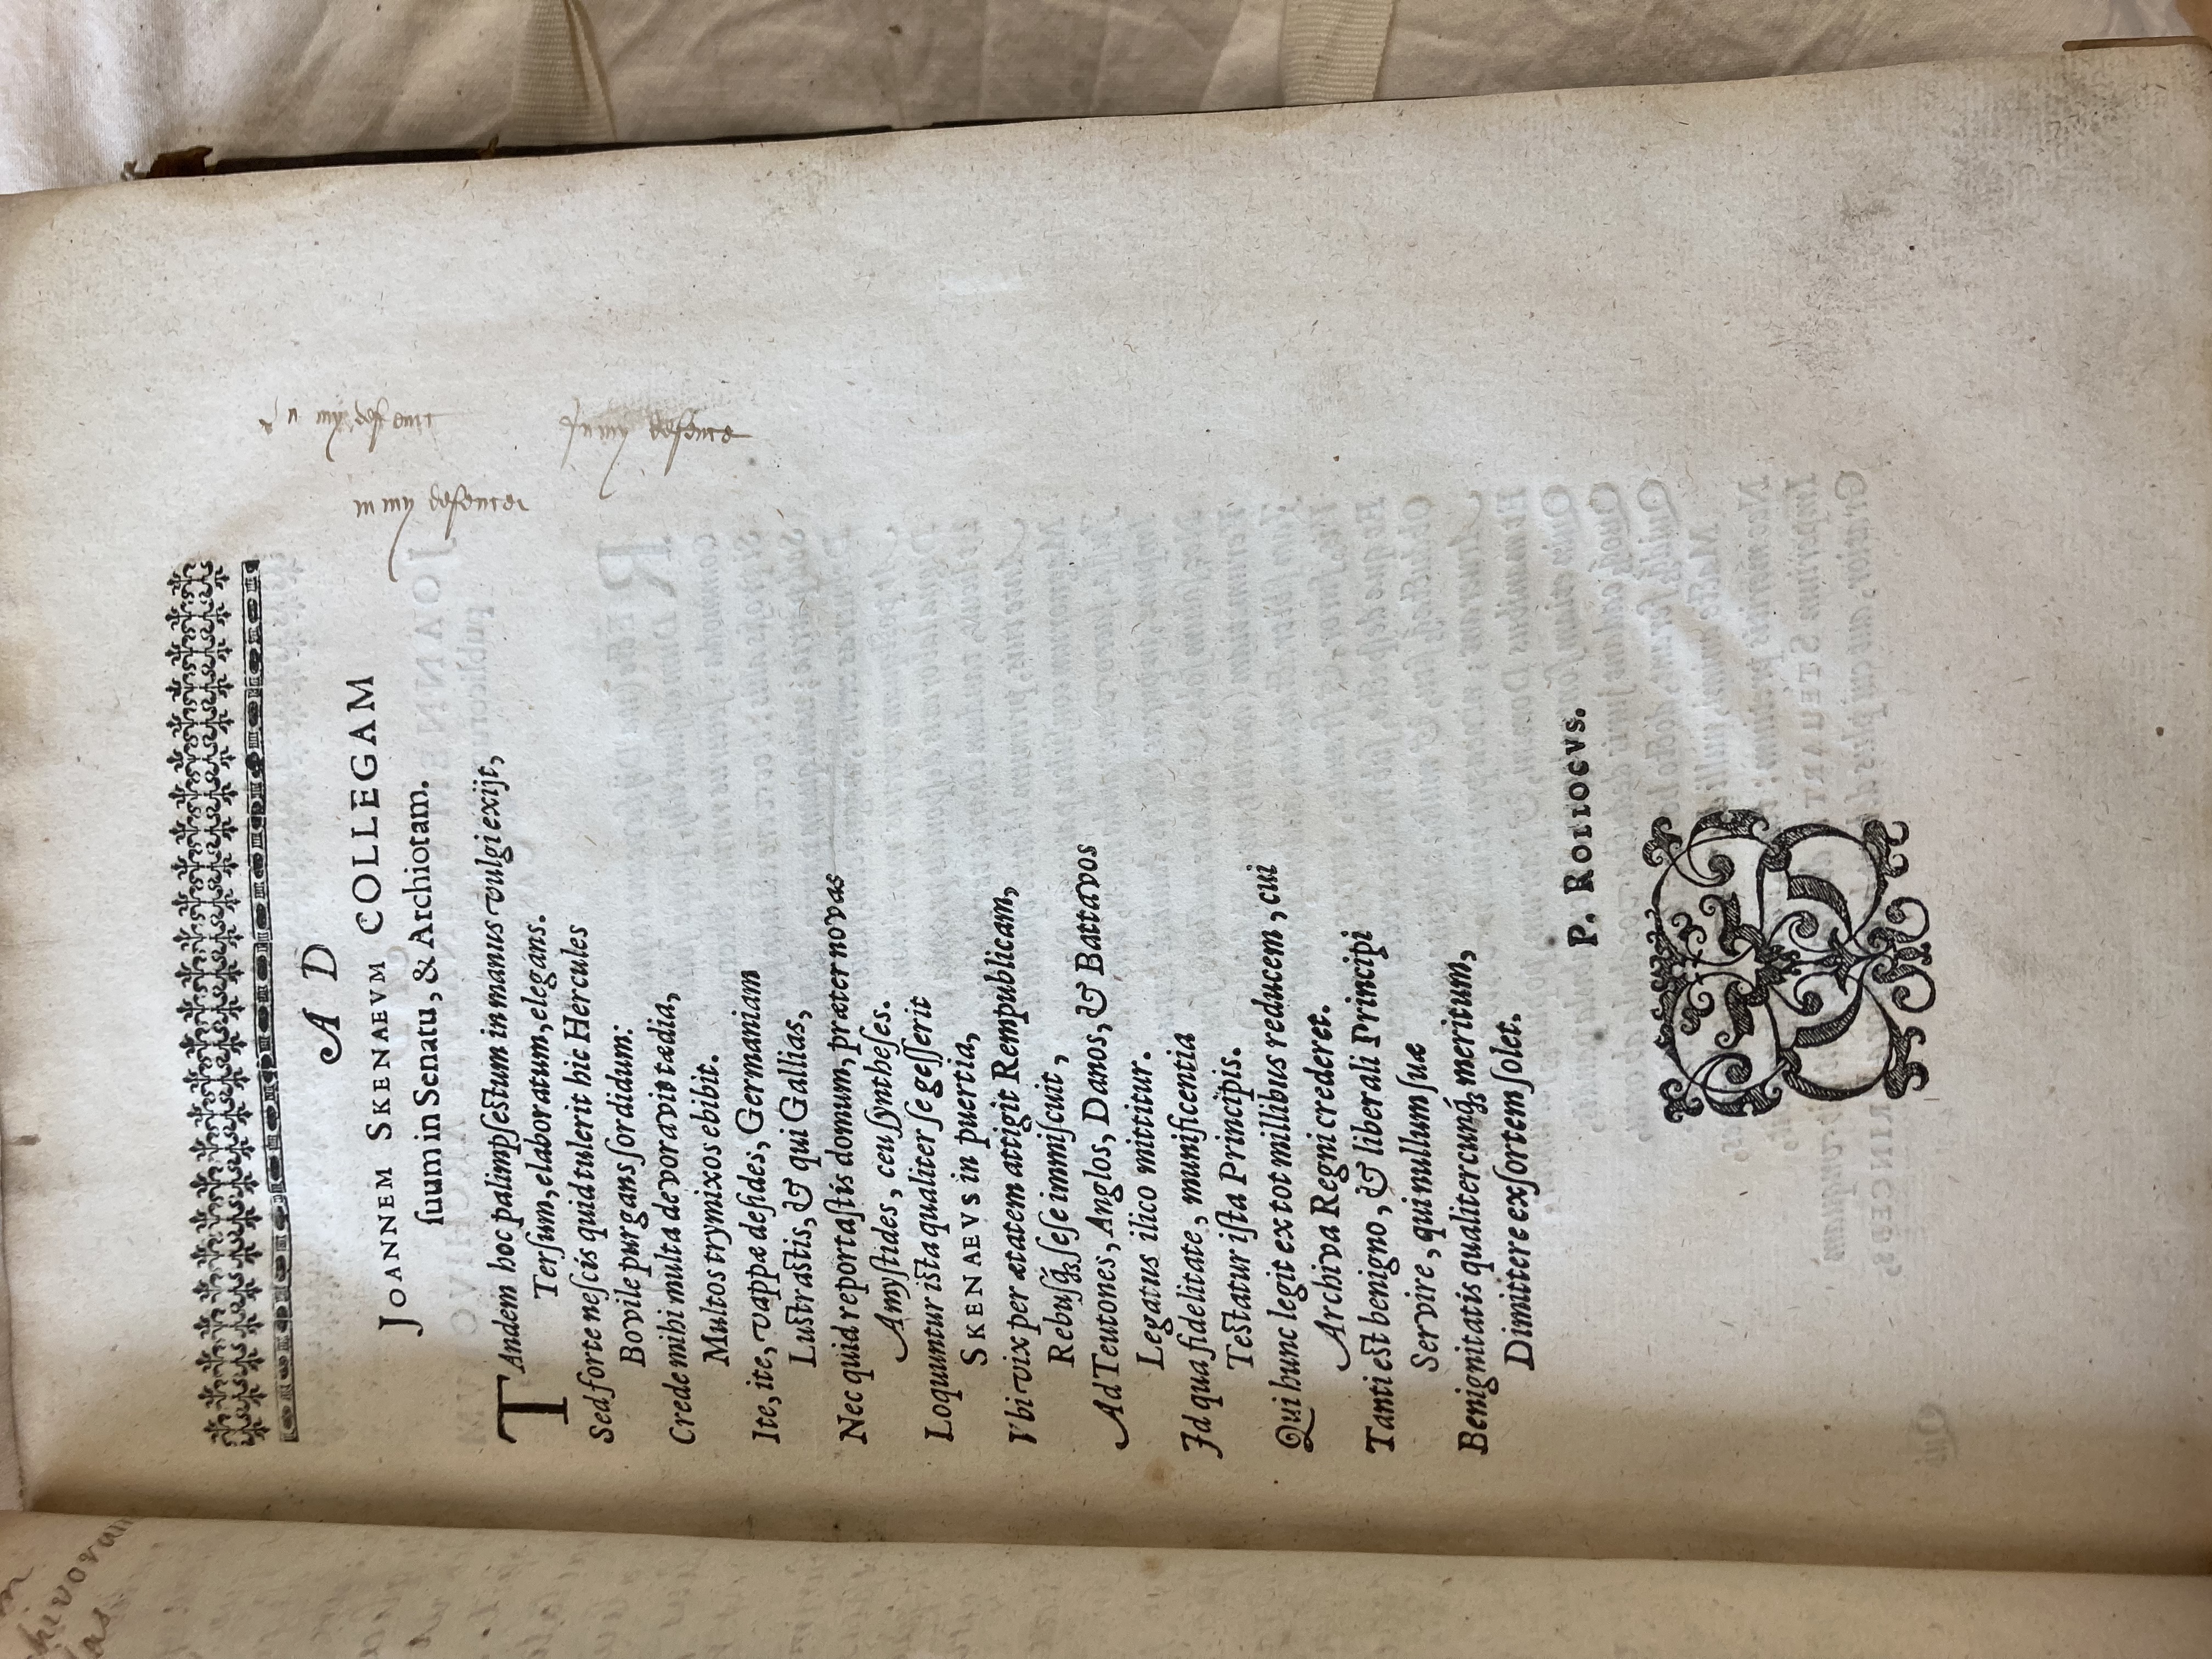 AD
JOANNEM SKENAEVM COLLEGAM
ſuum in Senatu, & Archiotam.
TAndem hoc palimpſeſtum in manus vulgi exijt,
Terſum, elaboratum, elegans.
Sed forte neſcis quid tulerit hic Hercules
Bovile purgans ſordidum:
Crede mihi multa devoravit tædia,
Multos trymixos ebibit.
Ite, ite, vappæ deſides, Germaniam
Luſtraſtis, & qui Gallias,
Nec quid reportaſtis domum, præter novas
Amyſtides, ceu ſyntheſes.
Loquuntur iſta qualiter ſe geſſerit
SKENAEVS in puertia,
Vbi vix per ætatem attigit Rempublicam,
Rebuſq́ꝫ ſeſe immiſcuit,
Ad Teutones, Anglos, Danos, & Battavos
Legatus ilico mittitur.
Id qua fidelitate, munificentia
Teſtatur iſta Principis.
Qui hunc legit ex tot millibus reducem, cui
Archiva Regni crederet.
Tanti eſt benigno, & liberali Principi
Servire, qui nullum ſuæ
Benignitatis qualitercunq́ꝫ meritum,
Dimittere exſortem ſolet.
P. ROLLOCVS.
In my defenc
in my defence
In my defence